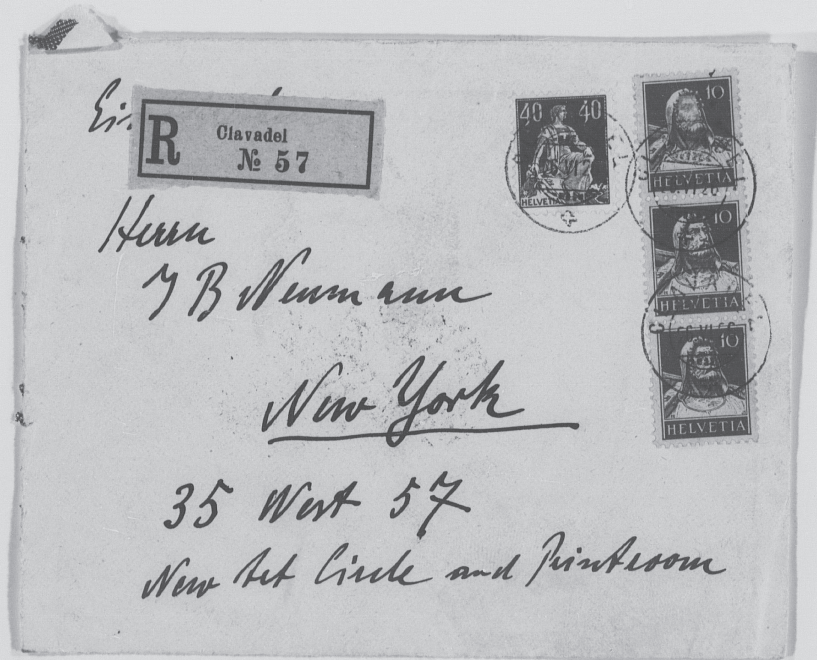 R Clavadel
№ 57
40 40
HELVETIA
10
HELVETIA
10
HELVETIA
10
HELVETIA
Herrn
J B Neumann
New York
35 West 57
New Art Circle and Printroom